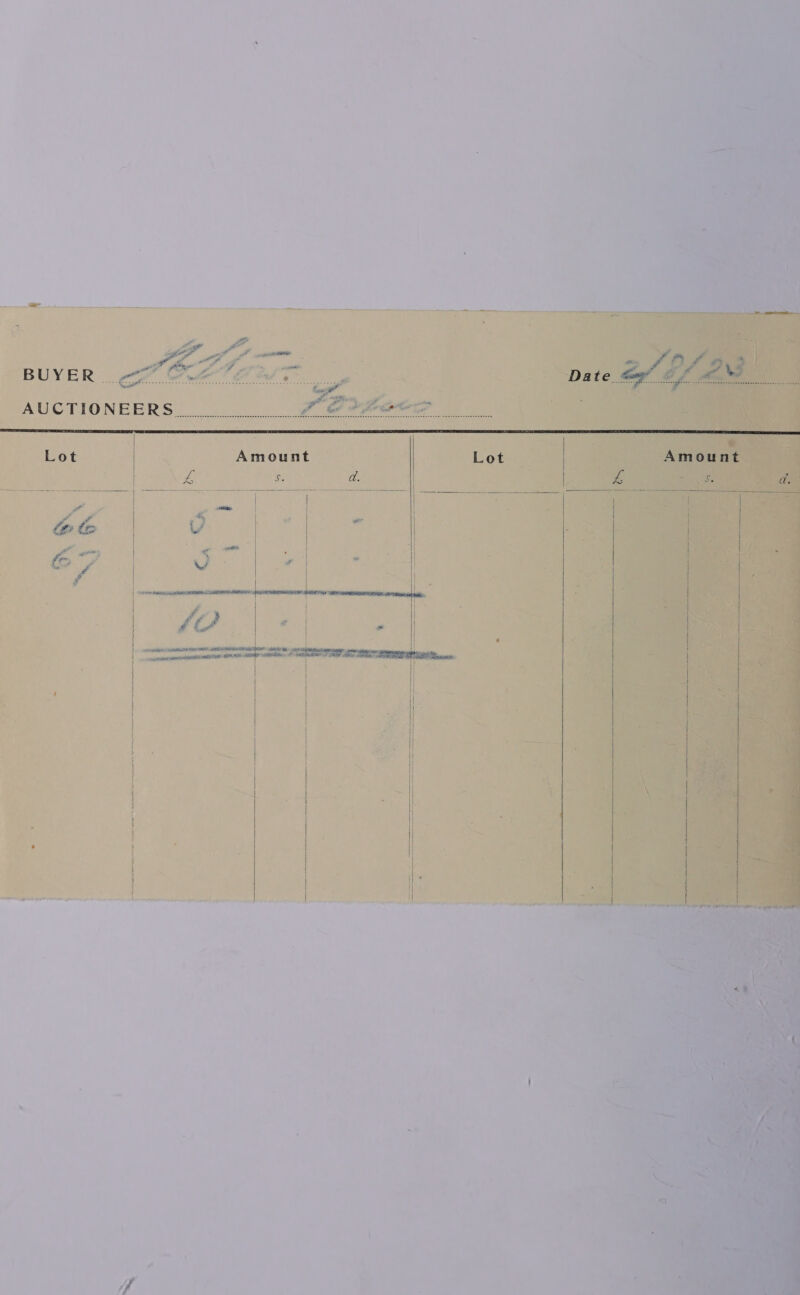 BUYER
Date 2/8/23
AUCTIONEERS
Lot Amount Lot Amount
£ s. d. £ s. d.
66 5 - -
67 5 - -
10 - -